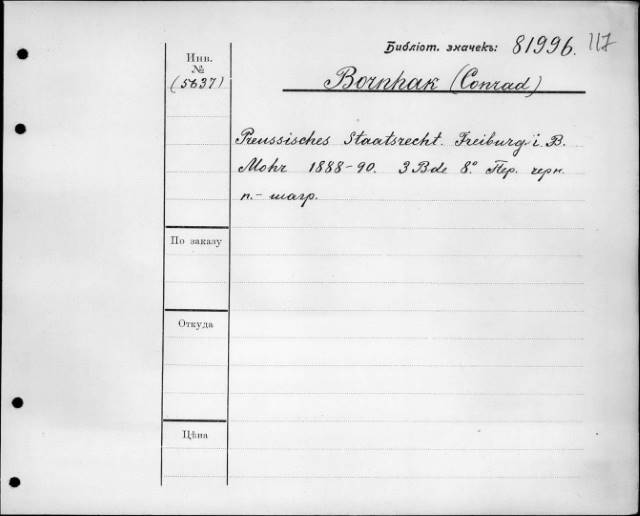 Библіот. значекъ: 81996. 117
Инв.
№
(5637)
Bornhak (Conrad)
Preussisches Staatsrecht. Freiburg i. B.
Mohr 1888-90. 3 Bde 8°. Пер. черн.
п.- шагр.
По заказу
Откуда
Цѣна